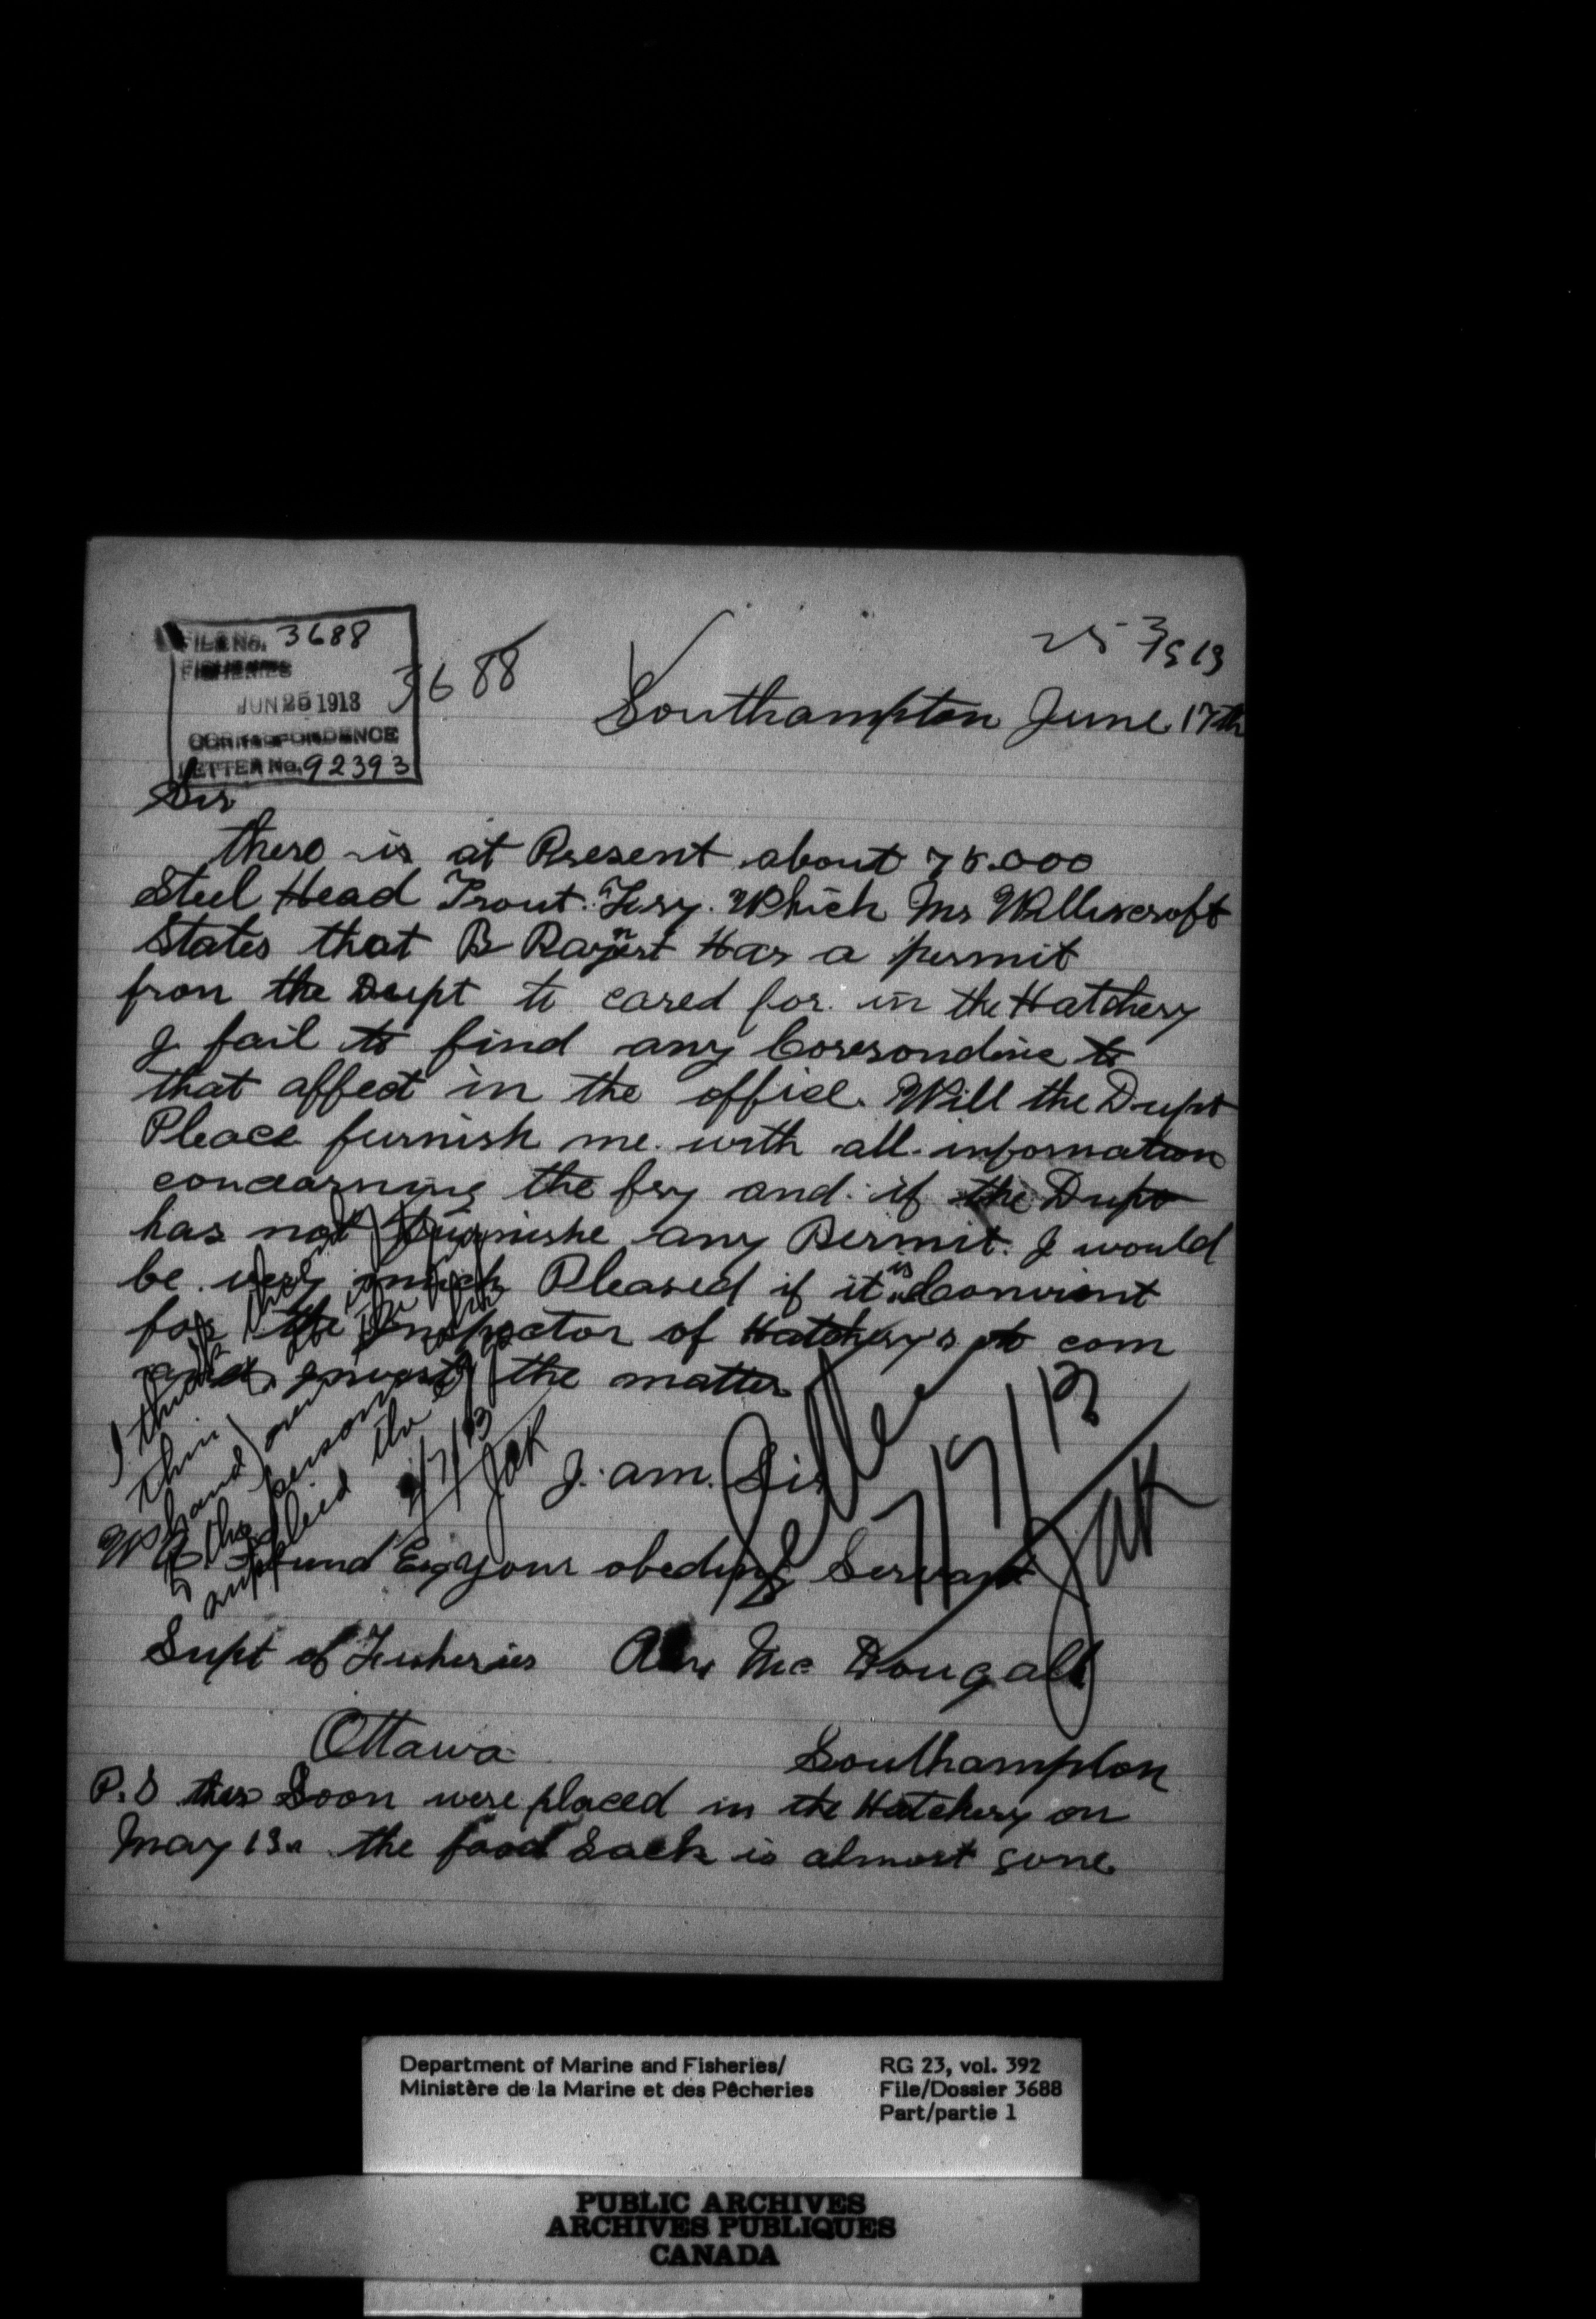 FILE No. 3688
FISHERIES
JUN 25 1913
CORRESPONDENCE
LETTER No. 92393
3688
Southampton June 17th
Sir
there is at Present about 75.000
Steel Head Trout Fry. Which Mr Williscroft
States that B Ranjert Has a permit
fron the Dept to cared for in the Hatchery
I fail to find any Corresondine to
that affect in the office. Will the Dept
Pleace furnish me with all information
concarning the fry and if the Dept
has not furnishe any Permit. I would
be very much Pleased if it is Convinent
for the Inspector of Hatchery's to com
and invest the matter
I think
then
hand over
the person
supplied the
2/7/13
JAK
I. am. Sir
Letter
7/7/13
JAK
Esq your obeding Servant
Supt of Fisheries Alex Mc Dougall
Ottawa Southampton
P.S thes Soon were placed in the Hatchery on
May 13. the food Sack is almost gone
Department of Marine and Fisheries/
Ministère de la Marine et des Pêcheries
RG 23, vol. 392
File/Dossier 3688
Part/partie 1
PUBLIC ARCHIVES
ARCHIVES PUBLIQUES
CANADA